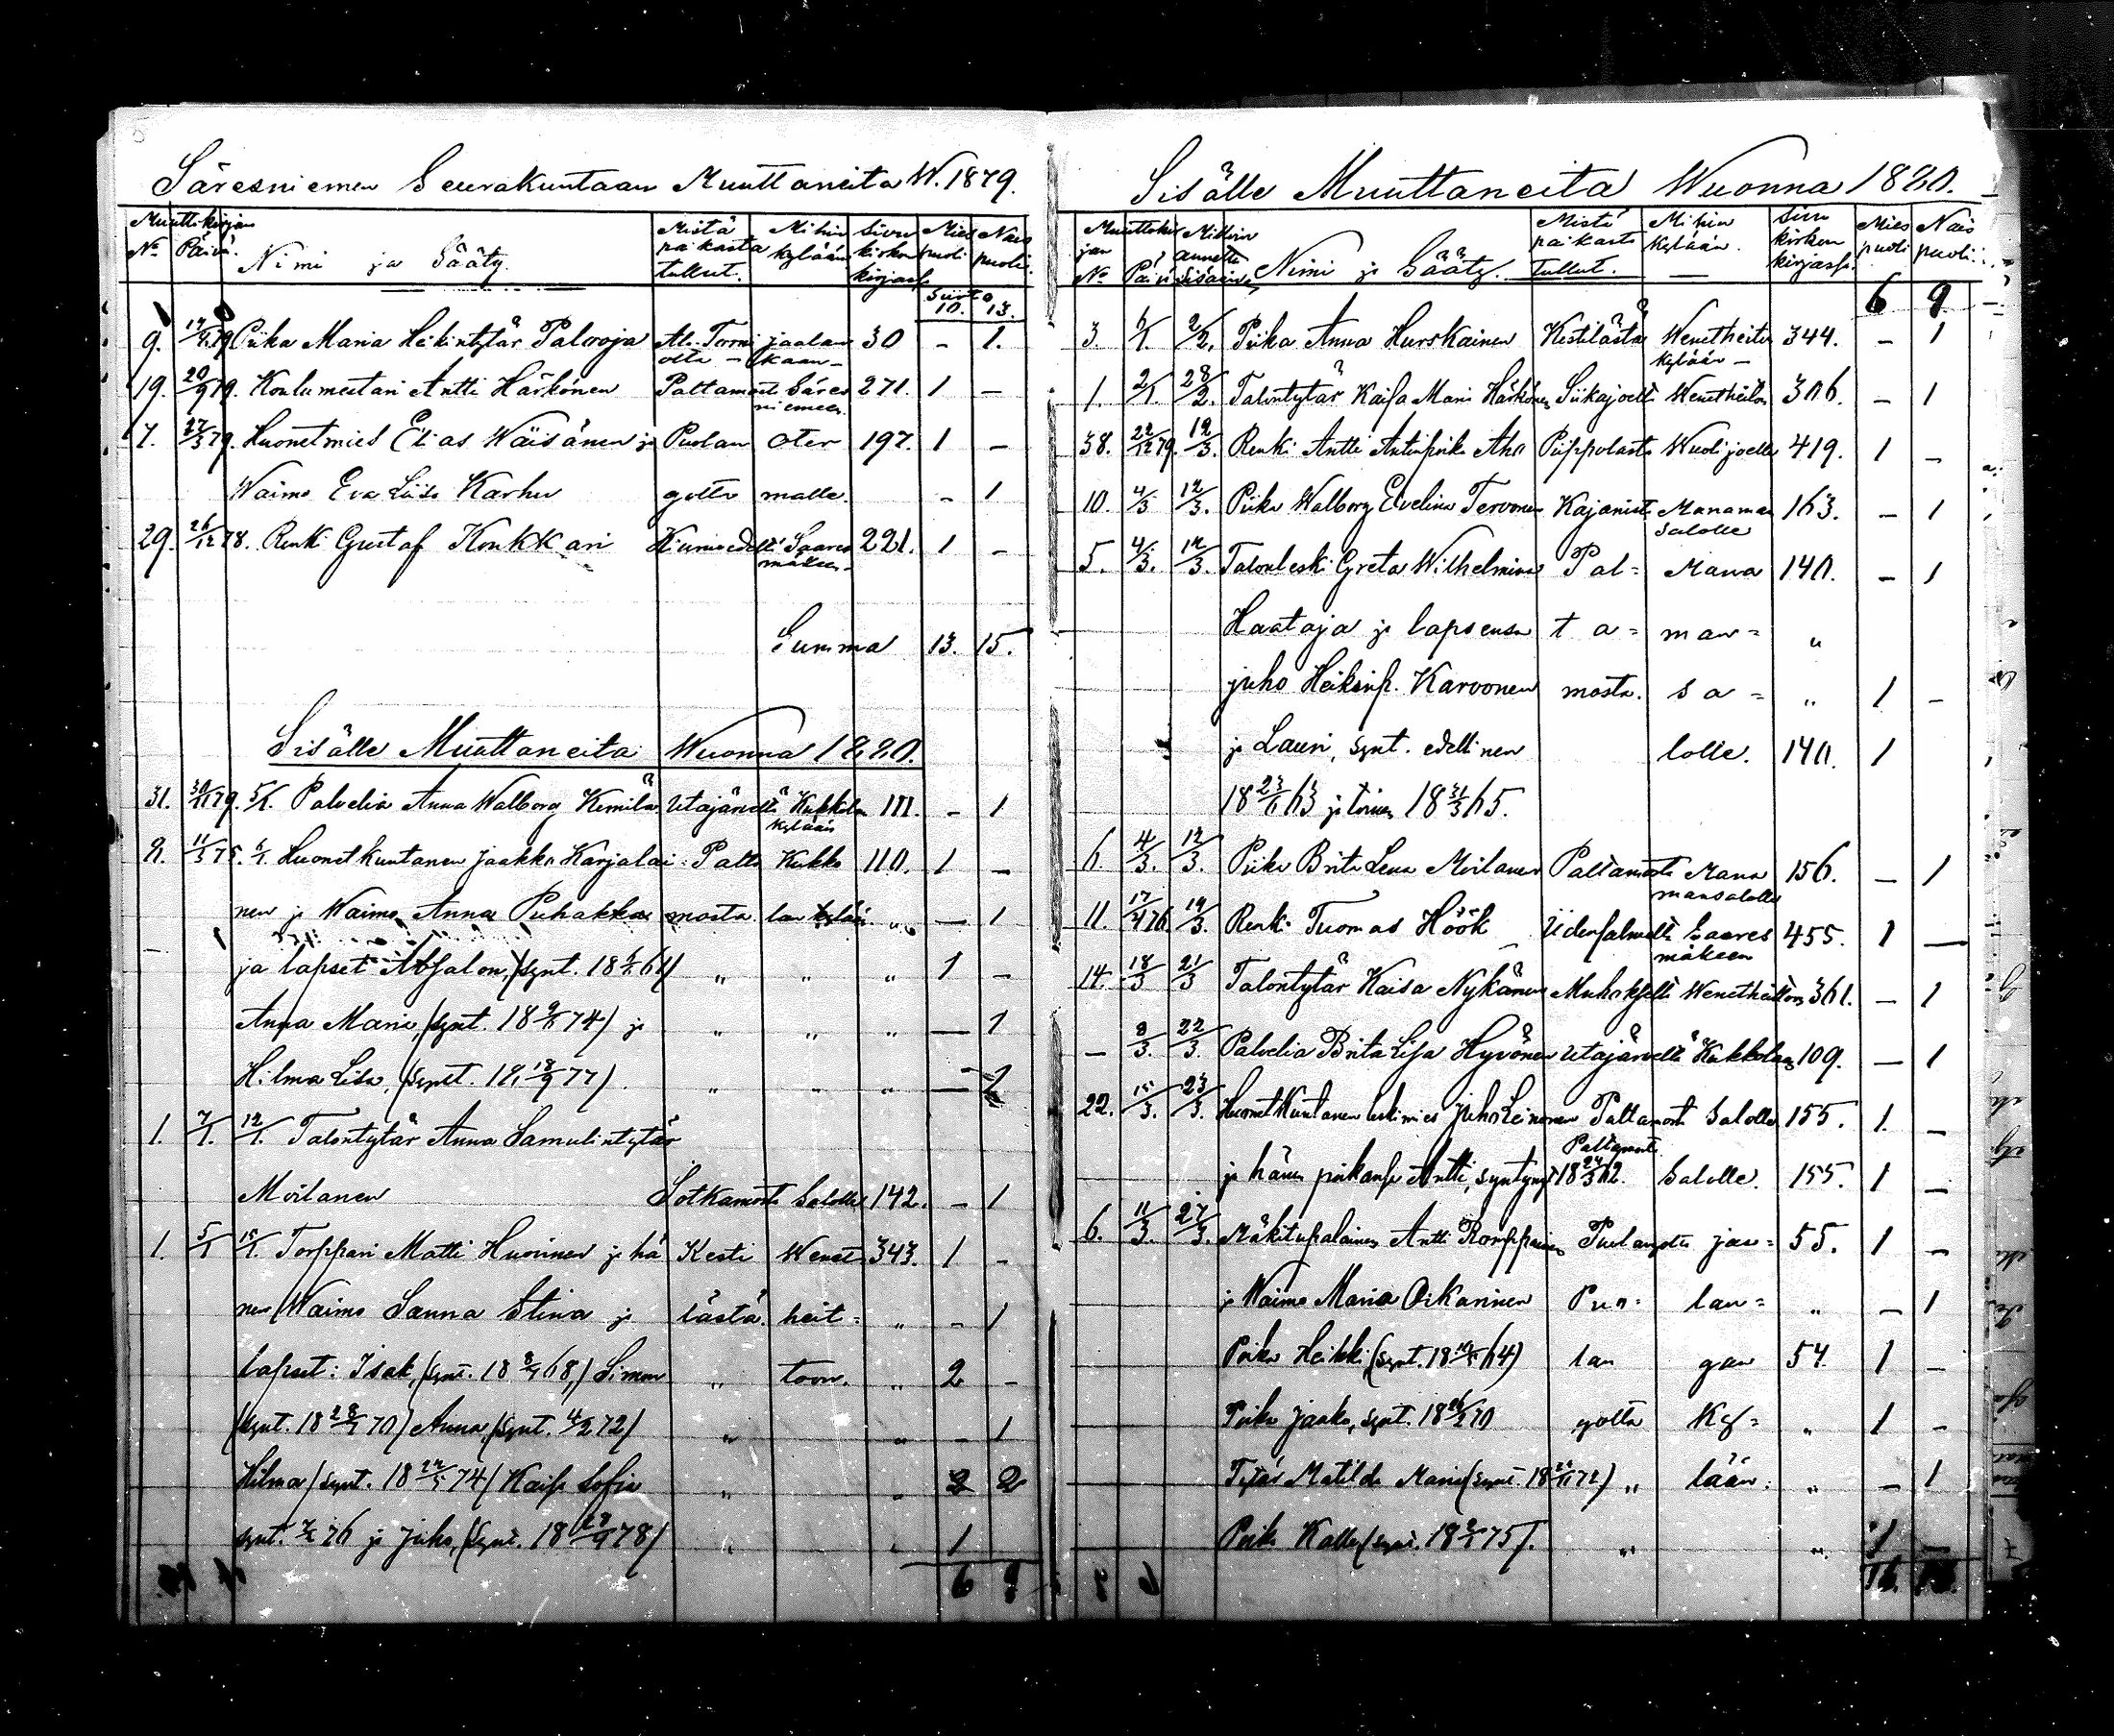 Säresniemen Seurakuntaan Muuttaneita W. 1879.
Muuttokirjan
No Päivä. Nimi ja Sääty. Mistä paikasta tullut. Mihin kylään Sivu kirkon kirjassa Mies puoli Nais puoli.
Siirto 10. 13.
9. 14/4 79 Piika Maria Heikintytär Palovaja Al. Torni jaalan 30 - 1.
olta - kaan -
19. 20/9 79. Koulumestari Antti Härkönen Paltamosta Säres 271. 1 -
niemeen
7. 27/3 79. Huonetmies Elias Wäisänen ja Puolan Oter 197. 1 -
Waimo Eva Liisa Karhu golta malle. - 1
29. 26/12 78. Renki Gustaf Konkkari Kiuruvedeltä Saares 221. 1 -
mäkeen -
Summa 13. 15.
Sisälle Muuttaneita Wuonna 1880.
31. 30/11 79. 5/1. Palvelia Anna Walborg Kemilä Utajärveltä Kukkolan 111. - 1
kylään
8. 11/3 75. 6/1. Huonetkuntanen Jaakko Karjalai= Palta Kukko 110. 1 -
nen ja Waimo Anna Puhakka mosta lan kylään " - 1
ja lapset Absalon, (synt. 18 61) " " " 1 -
Anna Maria, (synt. 18 74) ja " " " - 1
Hilma Lisa, (synt. 18 18/9 77). " " " - 1
1. 7/1. 12/1. Talontytär Anna Samulintytär
Moilanen Sotkamosta Salolle 142. - 1
1. 5/1 15/1. Torppari Matti Huovinen ja hä Kesti Wenet 343. 1 -
nen Waimo Sanna Stina ja lästä. heit= " - 1
lapset: Isak, (synt. 18 68,) Simon " toon. " 2 -
(synt. 18 28/7 70) Anna, (synt. 4/2 72) " " - 1
Hilma (synt. 18 74) Kaisa Sofia " " 2 2
synt. 76 ja Juho, (synt. 18 78) " " 1
6 9
Sisälle Muuttaneita Wuonna 1880.
Muuttokirjan No Päivä Milloin annettu sisään Nimi ja Sääty. Mistä paikasta tullut. Mihin kylään. Sivu kirkon kirjassa. Mies puoli Nais puoli.
6 9
3. 2/2. Piika Anna Hurskainen Kestilästä Wenetheiton 344. - 1
kylään -
1. 2/1. 28/2. Talontytär Kaisa Maria Härkönen Siikajoelta Wenetheitoon 306. - 1
38. 22/12 79. 12/3. Renki Antti Antinpoika Aho Piippolasta Wuolijoelle 419. 1 -
10. 4/3 12/3. Piika Walborg Evelina Tervonen Kajanista Manaman 163. - 1
salolle
5. 4/3. 12/3. Talonleski Greta Wilhelmina Pal= Mana 140. - 1
Haataja ja lapsensa ta= man= "
juho Heikinp. Karvonen mosta. sa= " 1 -
ja Lauri, synt. edellinen lolle. 140. 1
18 63 ja toinen 18 31/3 65.
6. 4/3. 12/3. Piika Brita Lena Moilanen Paltamosta Mana 156. - 1
mansalolle
11. 17/4 76. 19/3. Renki Tuomas Höök Iidensalmelta Saares 455. 1 -
mäkeen
14. 18/3 21/3 Talontytär Kaisa Nykänen Muhokselta Wenetheittoon 361. - 1
- 8/3. 22/3. Palvelia Brita Lisa Hyvönen Utajärveltä Kukkolaan 109. - 1
22. 15/3. 23/3. Huonetkuntanen leskimies Juho Leinonen Paltamosta Salolle 155. 1. -
Paltamosta
ja hänen poikansa Antti, syntynyt 18 24/3 62. Salolle. 155. 1 -
6. 11/3. 27/3. Mäkitupalainen Antti Romppainen Puolangolta jaa= 55. 1 -
ja Waimo Maria Oikarinen Puo= lan= " - 1
Poika Heikki, (synt. 18 64) lan gan 54 1 -
Poika Jaako, synt. 18 70 golta Ky= " 1 -
Tytär Matilda Maria (synt. 18 72) " lään: " - 1
Poika Kalle, (synt. 18 75). " " 1 -